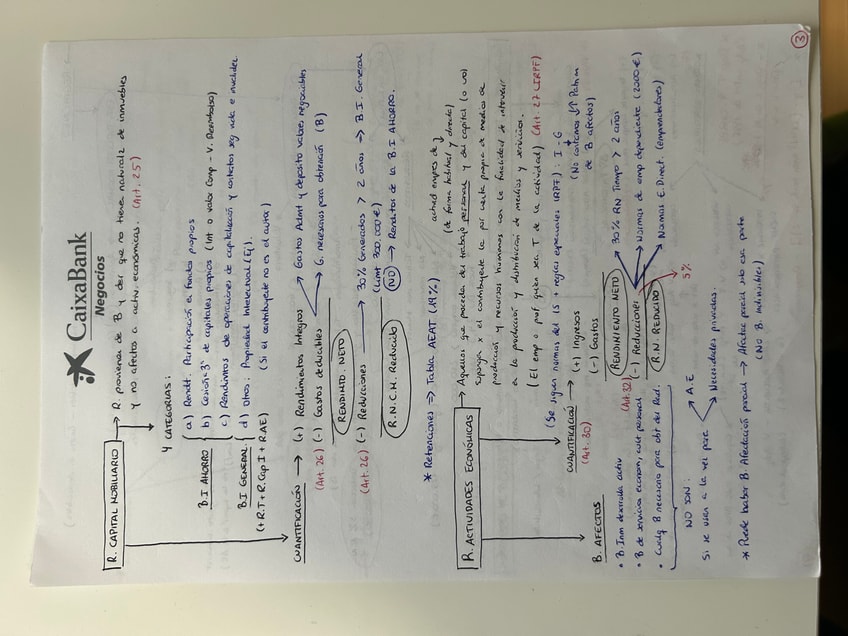 CaixaBank
Negocios
R. CAPITAL MOBILIARIO → R. provienen de B y der que no tienen naturalz de inmuebles
y no afectos a activ. económicas. (Art. 25)
4 CATEGORIAS:
B.I AHORRO
a) Rendtt. Participación en Fondos propios
b) Cesión a 3º de capitales propios (Int o valor Comp - V. Reembolso)
c) Rendimitos de operaciones de capitalización y contratos seg vida e invalidez
B.I GENERAL
d) Otros: Propiedad Intelectual (Ej.)
(+ R.T + R.Cap I + R.AE) (Si el contribuyente no es el autor)
CUANTIFICACIÓN → (+) Rendimientos Integros
(Art. 26) (-) Gastos deducibles → Gastos Admt y deposito valores negociables
→ G. necesarios para obtención (B)
RENDIMTO. NETO
(Art. 26) (-) Reducciones → 30% Generados > 2 años → B.I General
(Limt 300.000€)
(NO) → Rendmtos de la B.I AHORRO.
R.N.C.M. Reducido
* Retenciones → Tabla AEAT (19%)
R. ACTIVIDADES ECONÓMICAS → Aquellos que proceden del trabajo personal y del capital (o uno)
(de forma habitual y directa)
suponga x el contribuyente la por cuenta propia de medios de
producción y recursos humanos con la finalidad de intervenir
en la producción y distribución de medios y servicios.
(El emp o prof quien sea T de la actividad) (Art. 27 LIRPF)
(Se siguen normas del IS + reglas especiales IRPF): I - G
CUANTIFICACIÓN → (+) Ingresos
(Art. 30) (-) Gastos
(No contamos ↓↑ Patrim
de B afectos)
RENDIMIENTO NETO
(Art. 32) (-) Reducciones → 30% RN Tiempo > 2 años
→ Normas de emp dependiente (2000€)
→ Normas E.Direct (emprendedores)
R.N REDUCIDO
5%
B. AFECTOS
• B. Inm desarrolla activ
• B de servicios econom, cult personal
• Cualq B necesario para obt del Red.
NO SON:
Si se usan a la vez para → A.E
→ Necesidades privadas.
* Puede haber B Afectación parcial → Afectar parcial sólo esa parte
(NO B. Indivisibles)
3